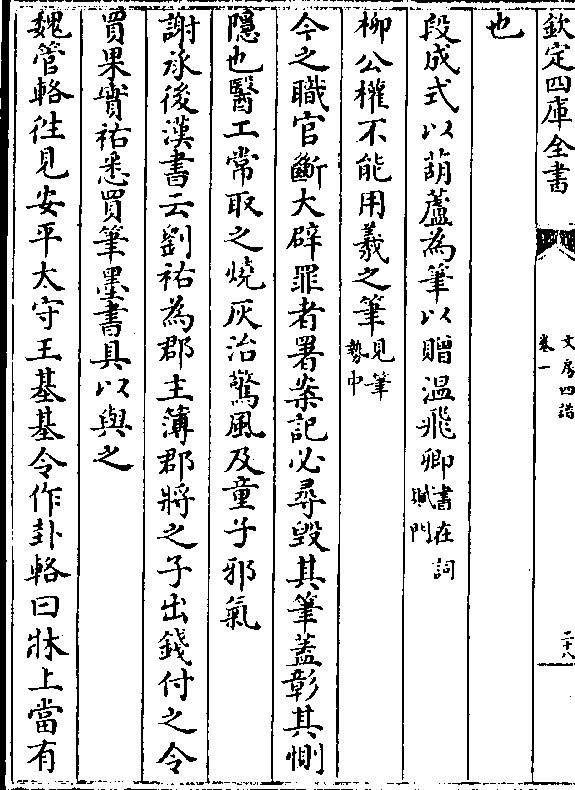 欽定四庫全書
文房四譜
卷一
二十八
也
段成式以葫蘆為筆以贈温飛卿書在詞賦門
柳公權不能用羲之筆見筆勢中
今之職官斷大辟罪者署案記必尋毀其筆蓋彰其惻
隱也醫工常取之燒灰治驚風及童子邪氣
謝承後漢書云劉祐為郡主簿郡將之子出錢付之令
買果實祐悉買筆墨書具以與之
魏管輅往見安平太守王基基令作卦輅曰牀上當有